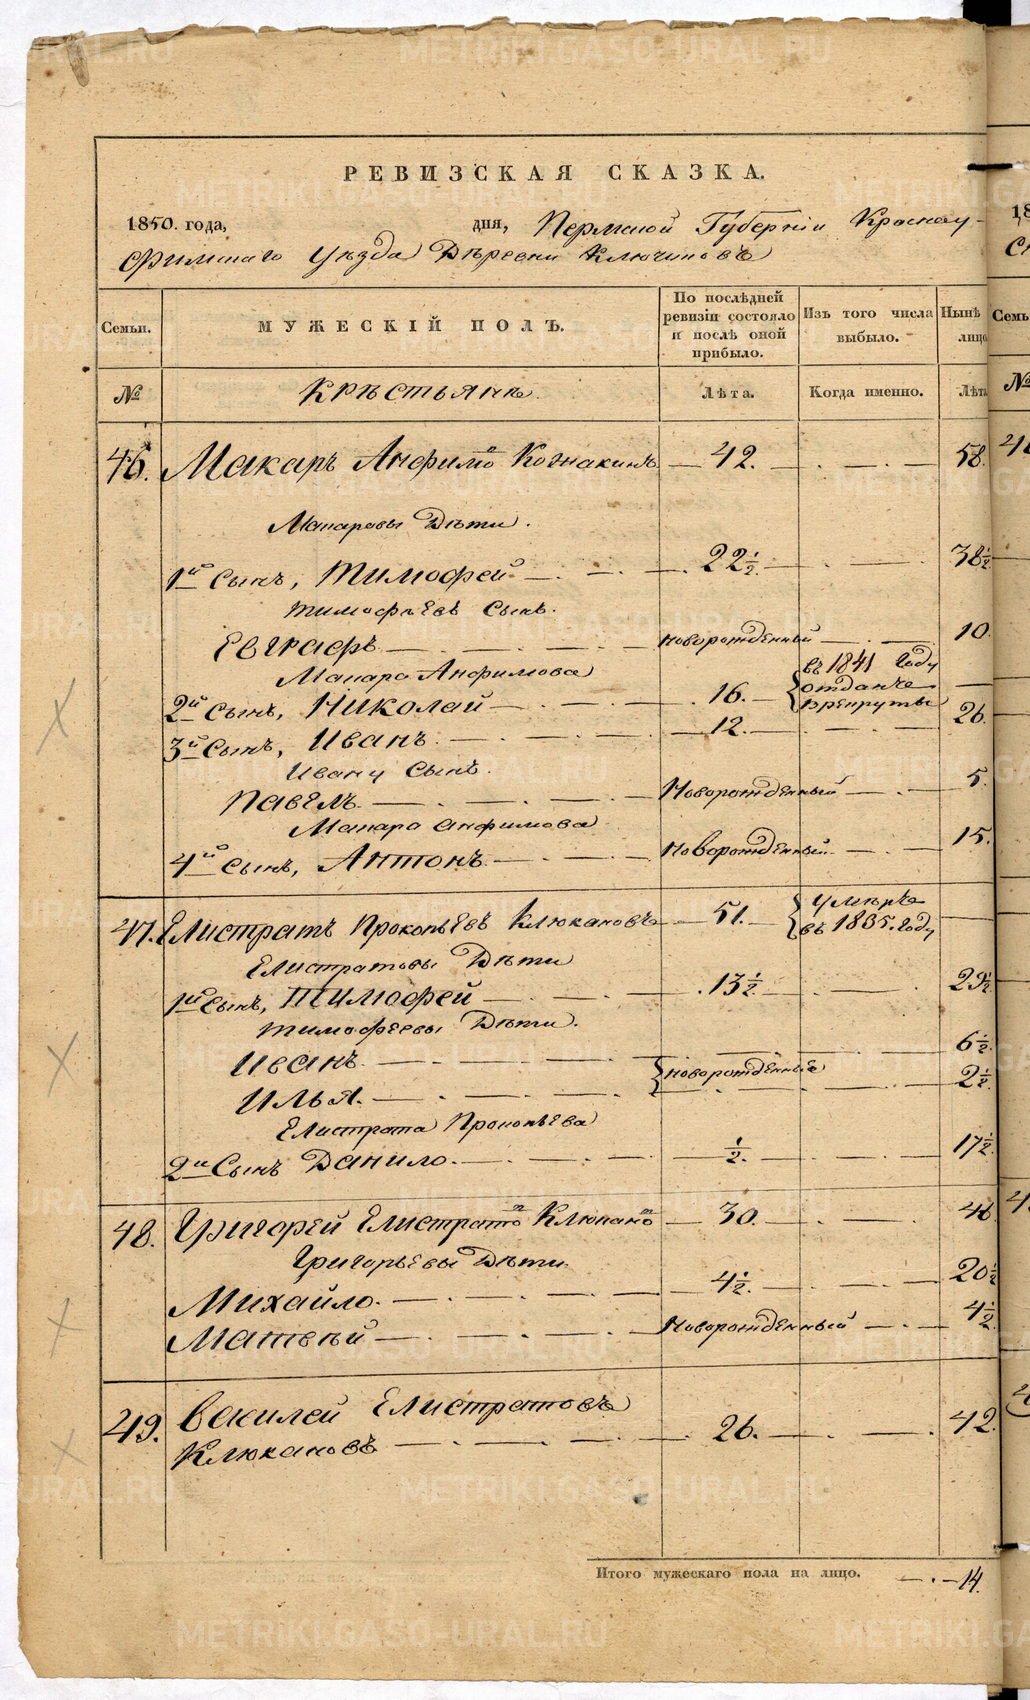 РЕВИЗСКАЯ СКАЗКА.
1850. года, дня, Пермской Губерніи Красноу-
фимскаго Уѣзда Дѣревни Ключиковъ
Семьи. МУЖЕСКІЙ ПОЛЪ. По послѣдней ревизіи состояло и послѣ оной прибыло. Изъ того числа выбыло. Нынѣ лицо
№ Крѣстьянъ. Лѣта. Когда именно. Лѣта
46. Макаръ Анфимовъ 42. 58.
Макаровы Дѣти.
1й Сынъ, Тимофей 22½. 38½
Тимофѣевъ Сынъ.
Евграфъ новорожденный 10.
Макара Анфимова
2й Сынъ, Николай 16. въ 1841 году отданъ в рекруты
3й Сынъ, Иванъ 12. 26.
Ивану Сынъ.
Павелъ Новорожденный 5.
Макара Анфимова
4й Сынъ, Антонъ Новорожденный 15.
47. Елистратъ Прокопьевъ Клюкановъ 51. умѣръ въ 1835. году
Елистратовы Дѣти
1й Сынъ, Тимофей 13½ 29½
Тимофеевы Дѣти.
Иванъ новорожденные 6½
Илья. 2½
Елистрата Прокопьева
2й Сынъ Данило. ½. 17½
48. Григорей Елистратов Клюканов 30. 46
Григорьевы Дѣти.
Михайло. 4½. 20½
Матвѣй Новорожденный 4½
49. Василей Елистратовъ
Клюкановъ 26. 42.
Итого мужескаго пола на лицо. 14.
METRIKI.GASO-URAL.RU